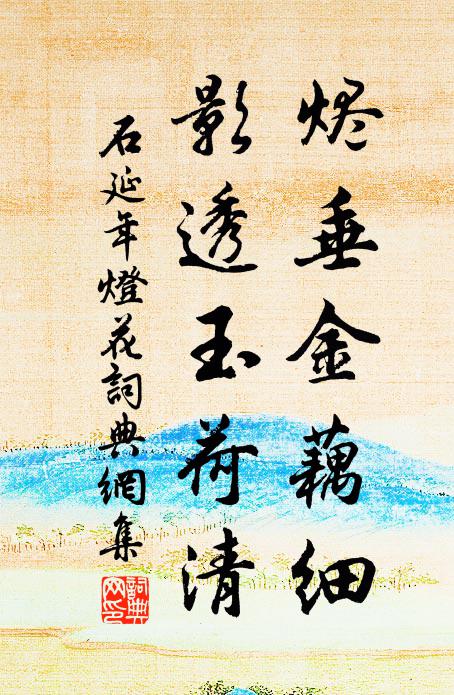 烬垂金藕细
影透玉荷清
石延年燈花詞典網集